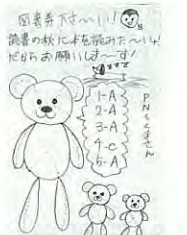 図書券下さ～い！
読書の秋に本を読みた～い！
だからお願いしま～す！
zzz
1-A
2-A
3-A
4-C
5-A
PNくまさん